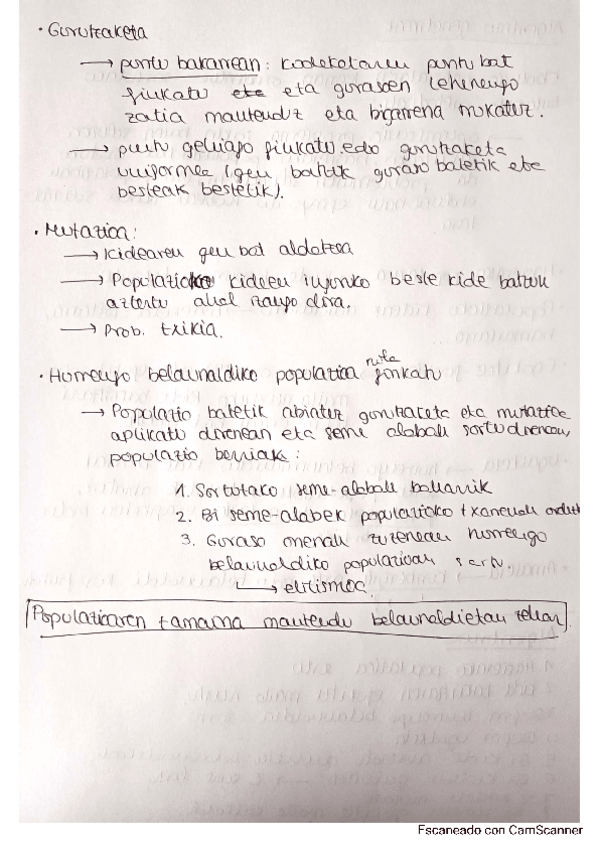 · Gurutzaketa
→ puntu bakarrean: kodeketaren puntu bat
finkatu eta gurasoen lehinengo
zatia mantenduz eta bigarrena trukatuz.
→ puntu gehiago finkatu edo gurutzaketa
uniformea (gen batzuk guraso batetik eta
besteak bestetik).
· Mutazioa:
→ Kidearen gen bat aldatzea
→ Populazioko kideen inguruko beste kide batzuk
aztertu ahal izango dira.
→ Prob. txikia.
· Hurrengo belaunaldiko populazioa finkatu
→ Populazio batetik abiatuz gurutzaketa eta mutazioa
aplikatu direnean eta seme alabak sortu direnean,
populazio berriak:
1. Sortutako seme-alabak bakarrik
2. Bi seme-alabek populazioko txarrenak ordeztu
3. Guraso onenak zuzenean hurrengo
belaunaldiko populazioan sartu.
→ elitismoa
Populazioaren tamaina mantendu belaunaldietan zehar
Escaneado con CamScanner